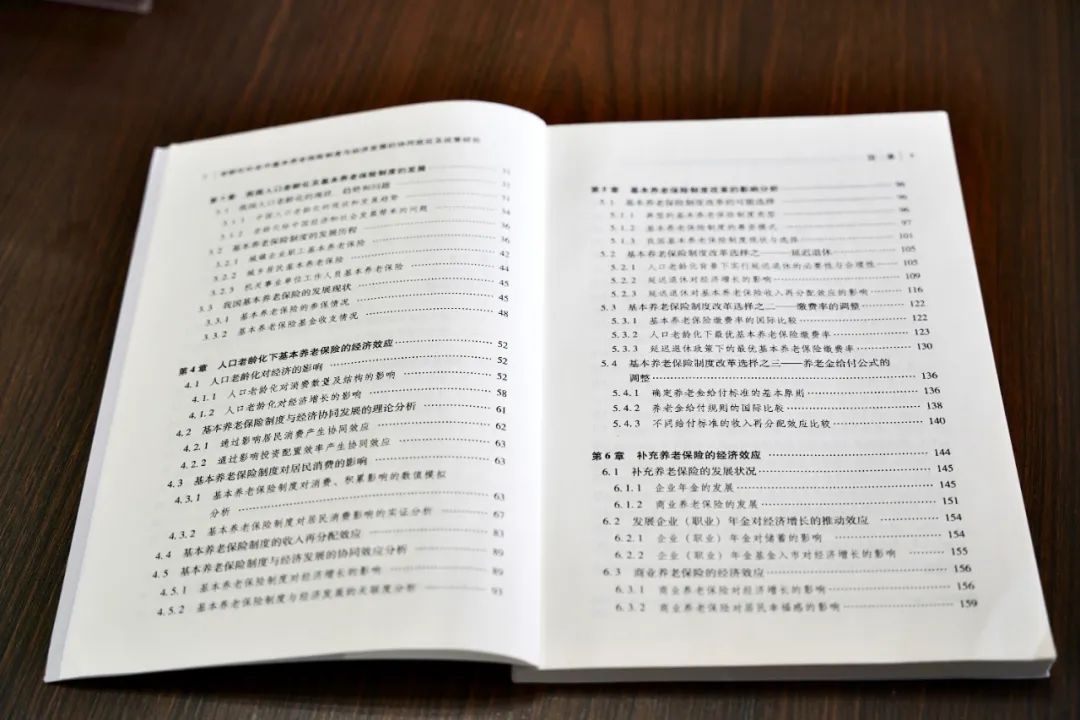 第3章 我国人口老龄化及基本养老保险制度的发展 31
3.1 我国人口老龄化的现状、趋势和问题 31
3.1.1 中国人口老龄化的现状和发展趋势 31
3.1.2 老龄化给中国经济和社会发展带来的问题 34
3.2 基本养老保险制度的发展历程 36
3.2.1 城镇企业职工基本养老保险 36
3.2.2 城乡居民基本养老保险 42
3.2.3 机关事业单位工作人员基本养老保险 44
3.3 我国基本养老保险的发展现状 45
3.3.1 基本养老保险的参保情况 45
3.3.2 基本养老保险基金收支情况 48
第4章 人口老龄化下基本养老保险的经济效应 52
4.1 人口老龄化对经济的影响 52
4.1.1 人口老龄化对消费数量及结构的影响 52
4.1.2 人口老龄化对经济增长的影响 58
4.2 基本养老保险制度与经济协同发展的理论分析 61
4.2.1 通过影响居民消费产生协同效应 62
4.2.2 通过影响投资配置效率产生协同效应 63
4.3 基本养老保险制度对居民消费的影响 63
4.3.1 基本养老保险制度对消费、积累影响的数值模拟
分析 63
4.3.2 基本养老保险制度对居民消费影响的实证分析 67
4.4 基本养老保险制度的收入再分配效应 83
4.5 基本养老保险制度与经济发展的协同效应分析 89
4.5.1 基本养老保险制度对经济增长的影响 89
4.5.2 基本养老保险制度与经济发展的关联度分析 93
目 录
第5章 基本养老保险制度改革的影响分析 96
5.1 基本养老保险制度改革的可能选择 96
5.1.1 典型的基本养老保险制度类型 96
5.1.2 基本养老保险制度的筹资模式 97
5.1.3 我国基本养老保险制度现状与选择 101
5.2 基本养老保险制度改革选择之一——延迟退休 105
5.2.1 人口老龄化背景下实行延迟退休的必要性与合理性 105
5.2.2 延迟退休对经济增长的影响 109
5.2.3 延迟退休对基本养老保险收入再分配效应的影响 116
5.3 基本养老保险制度改革选择之二——缴费率的调整 122
5.3.1 基本养老保险缴费率的国际比较 122
5.3.2 人口老龄化下最优基本养老保险缴费率 123
5.3.3 延迟退休政策下的最优基本养老保险缴费率 130
5.4 基本养老保险制度改革选择之三——养老金给付公式的
调整 136
5.4.1 确定养老金给付标准的基本原则 136
5.4.2 养老金给付规则的国际比较 138
5.4.3 不同给付标准的收入再分配效应比较 140
第6章 补充养老保险的经济效应 144
6.1 补充养老保险的发展状况 145
6.1.1 企业年金的发展 145
6.1.2 商业养老保险的发展 151
6.2 发展企业（职业）年金对经济增长的推动效应 154
6.2.1 企业（职业）年金对储蓄的影响 154
6.2.2 企业（职业）年金基金入市对经济增长的影响 155
6.3 商业养老保险的经济效应 156
6.3.1 商业养老保险对经济增长的影响 156
6.3.2 商业养老保险对居民幸福感的影响 159